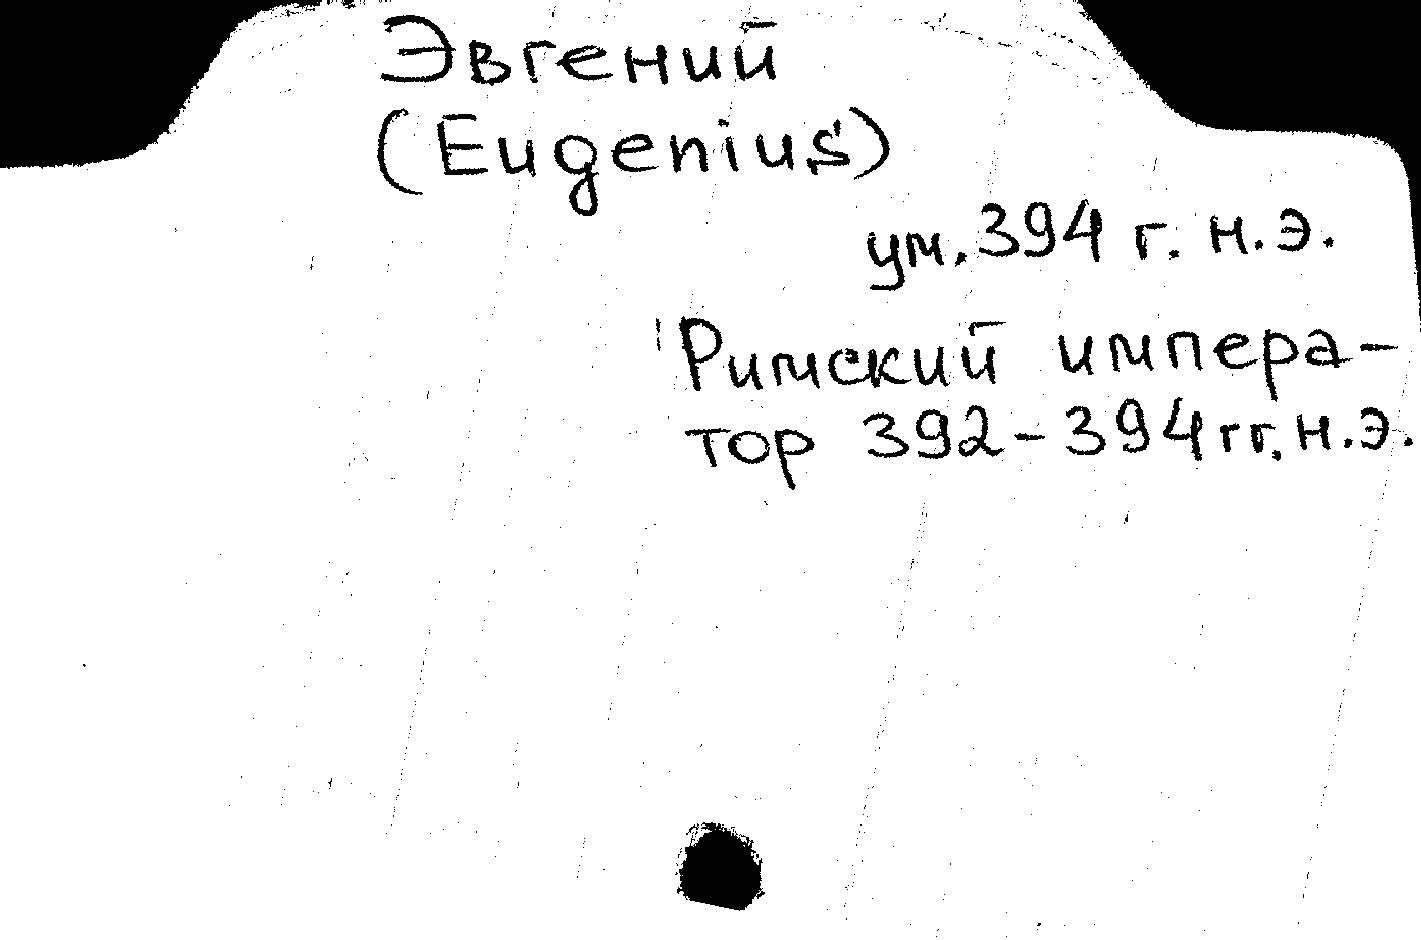 Эвгений
(Eugenius)
ум. 394 г. н.э.
Римский импера-
тор 392-394 гг. н.э.